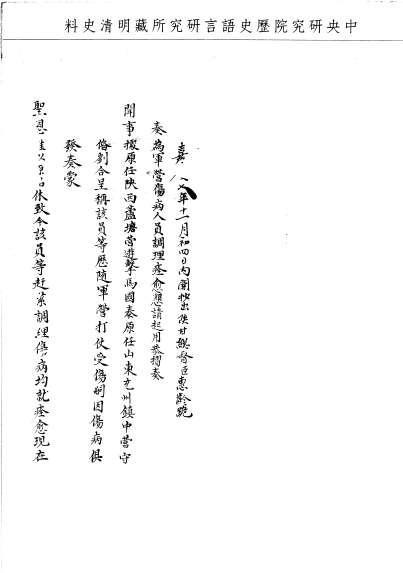 中央研究院歷史語言研究所藏明清史料
嘉 八年十一月初四日內閣抄出陝甘總督臣惠齡跪
奏為軍營傷病人員調理痊愈懇請起用恭摺奏
聞事據原任陝西蘆塘營遊擊馬國泰原任山東兗州鎮中營守
備劉合呈稱該員等歷隨軍營打仗受傷嗣因傷病俱
發奏蒙
聖恩 以 休致今該員等 調理傷病均就痊愈現在